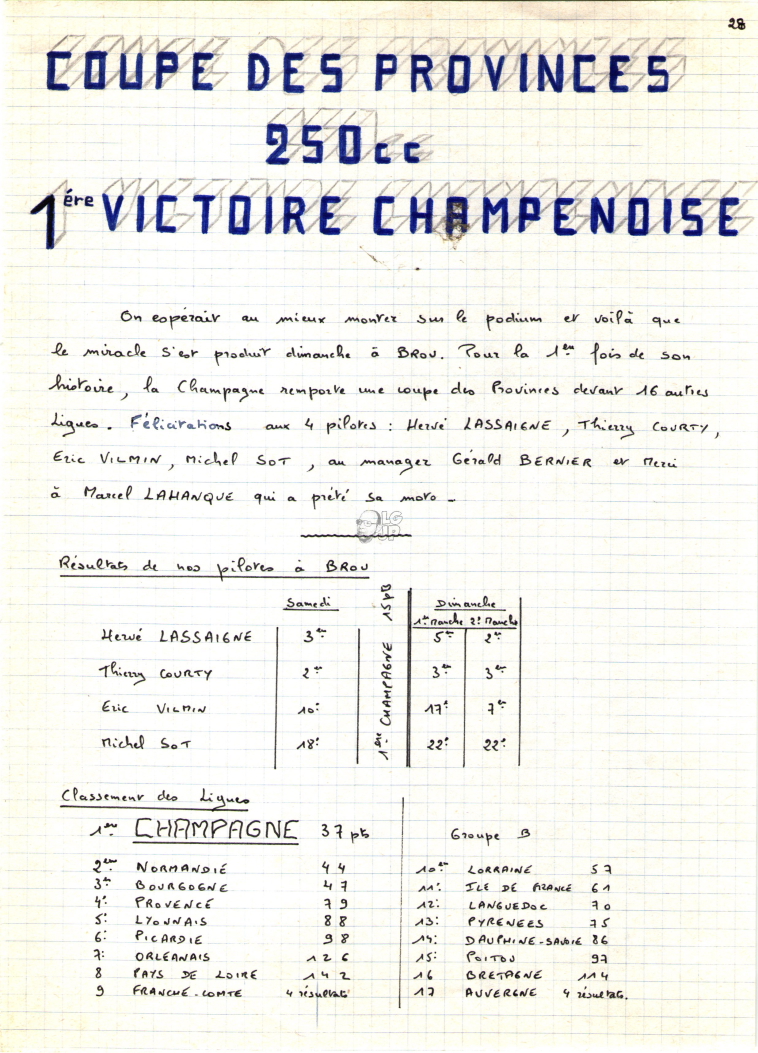 28
COUPE DES PROVINCES
250cc
1ère VICTOIRE CHAMPENOISE
On espérait au mieux monter sur le podium et voilà que
le miracle s'est produit dimanche à BROU. Pour la 1ère fois de son
histoire, la Champagne remporte une coupe des Provinces devant 16 autres
Ligues. Félicitations aux 4 pilotes : Hervé LASSAIGNE, Thierry COURTY,
Eric VILMIN, Michel SOT, au manager Gérald BERNIER et Merci
à Marcel LAHANQUE qui a prêté sa moto -
LG
UP
Résultats de nos pilotes à BROU
Samedi
1ère CHAMPAGNE 15 pts
Dimanche
1ère Manche 2e Manche
Hervé LASSAIGNE 3e 5e 2e
Thierry COURTY 2e 3e 3e
Eric VILMIN 10e 17e 7e
Michel SOT 18e 22e 22e
Classement des Ligues
1er CHAMPAGNE 37 pts
2ème NORMANDIE 44
3e BOURGOGNE 47
4e PROVENCE 79
5e LYONNAIS 88
6e PICARDIE 98
7e ORLEANAIS 126
8 PAYS DE LOIRE 142
9 FRANCHE-COMTE 4 résultats
Groupe B
10e LORRAINE 57
11e ILE DE FRANCE 61
12e LANGUEDOC 70
13e PYRENEES 75
14e DAUPHINE-SAVOIE 86
15e POITOU 97
16 BRETAGNE 114
17 AUVERGNE 4 résultats.